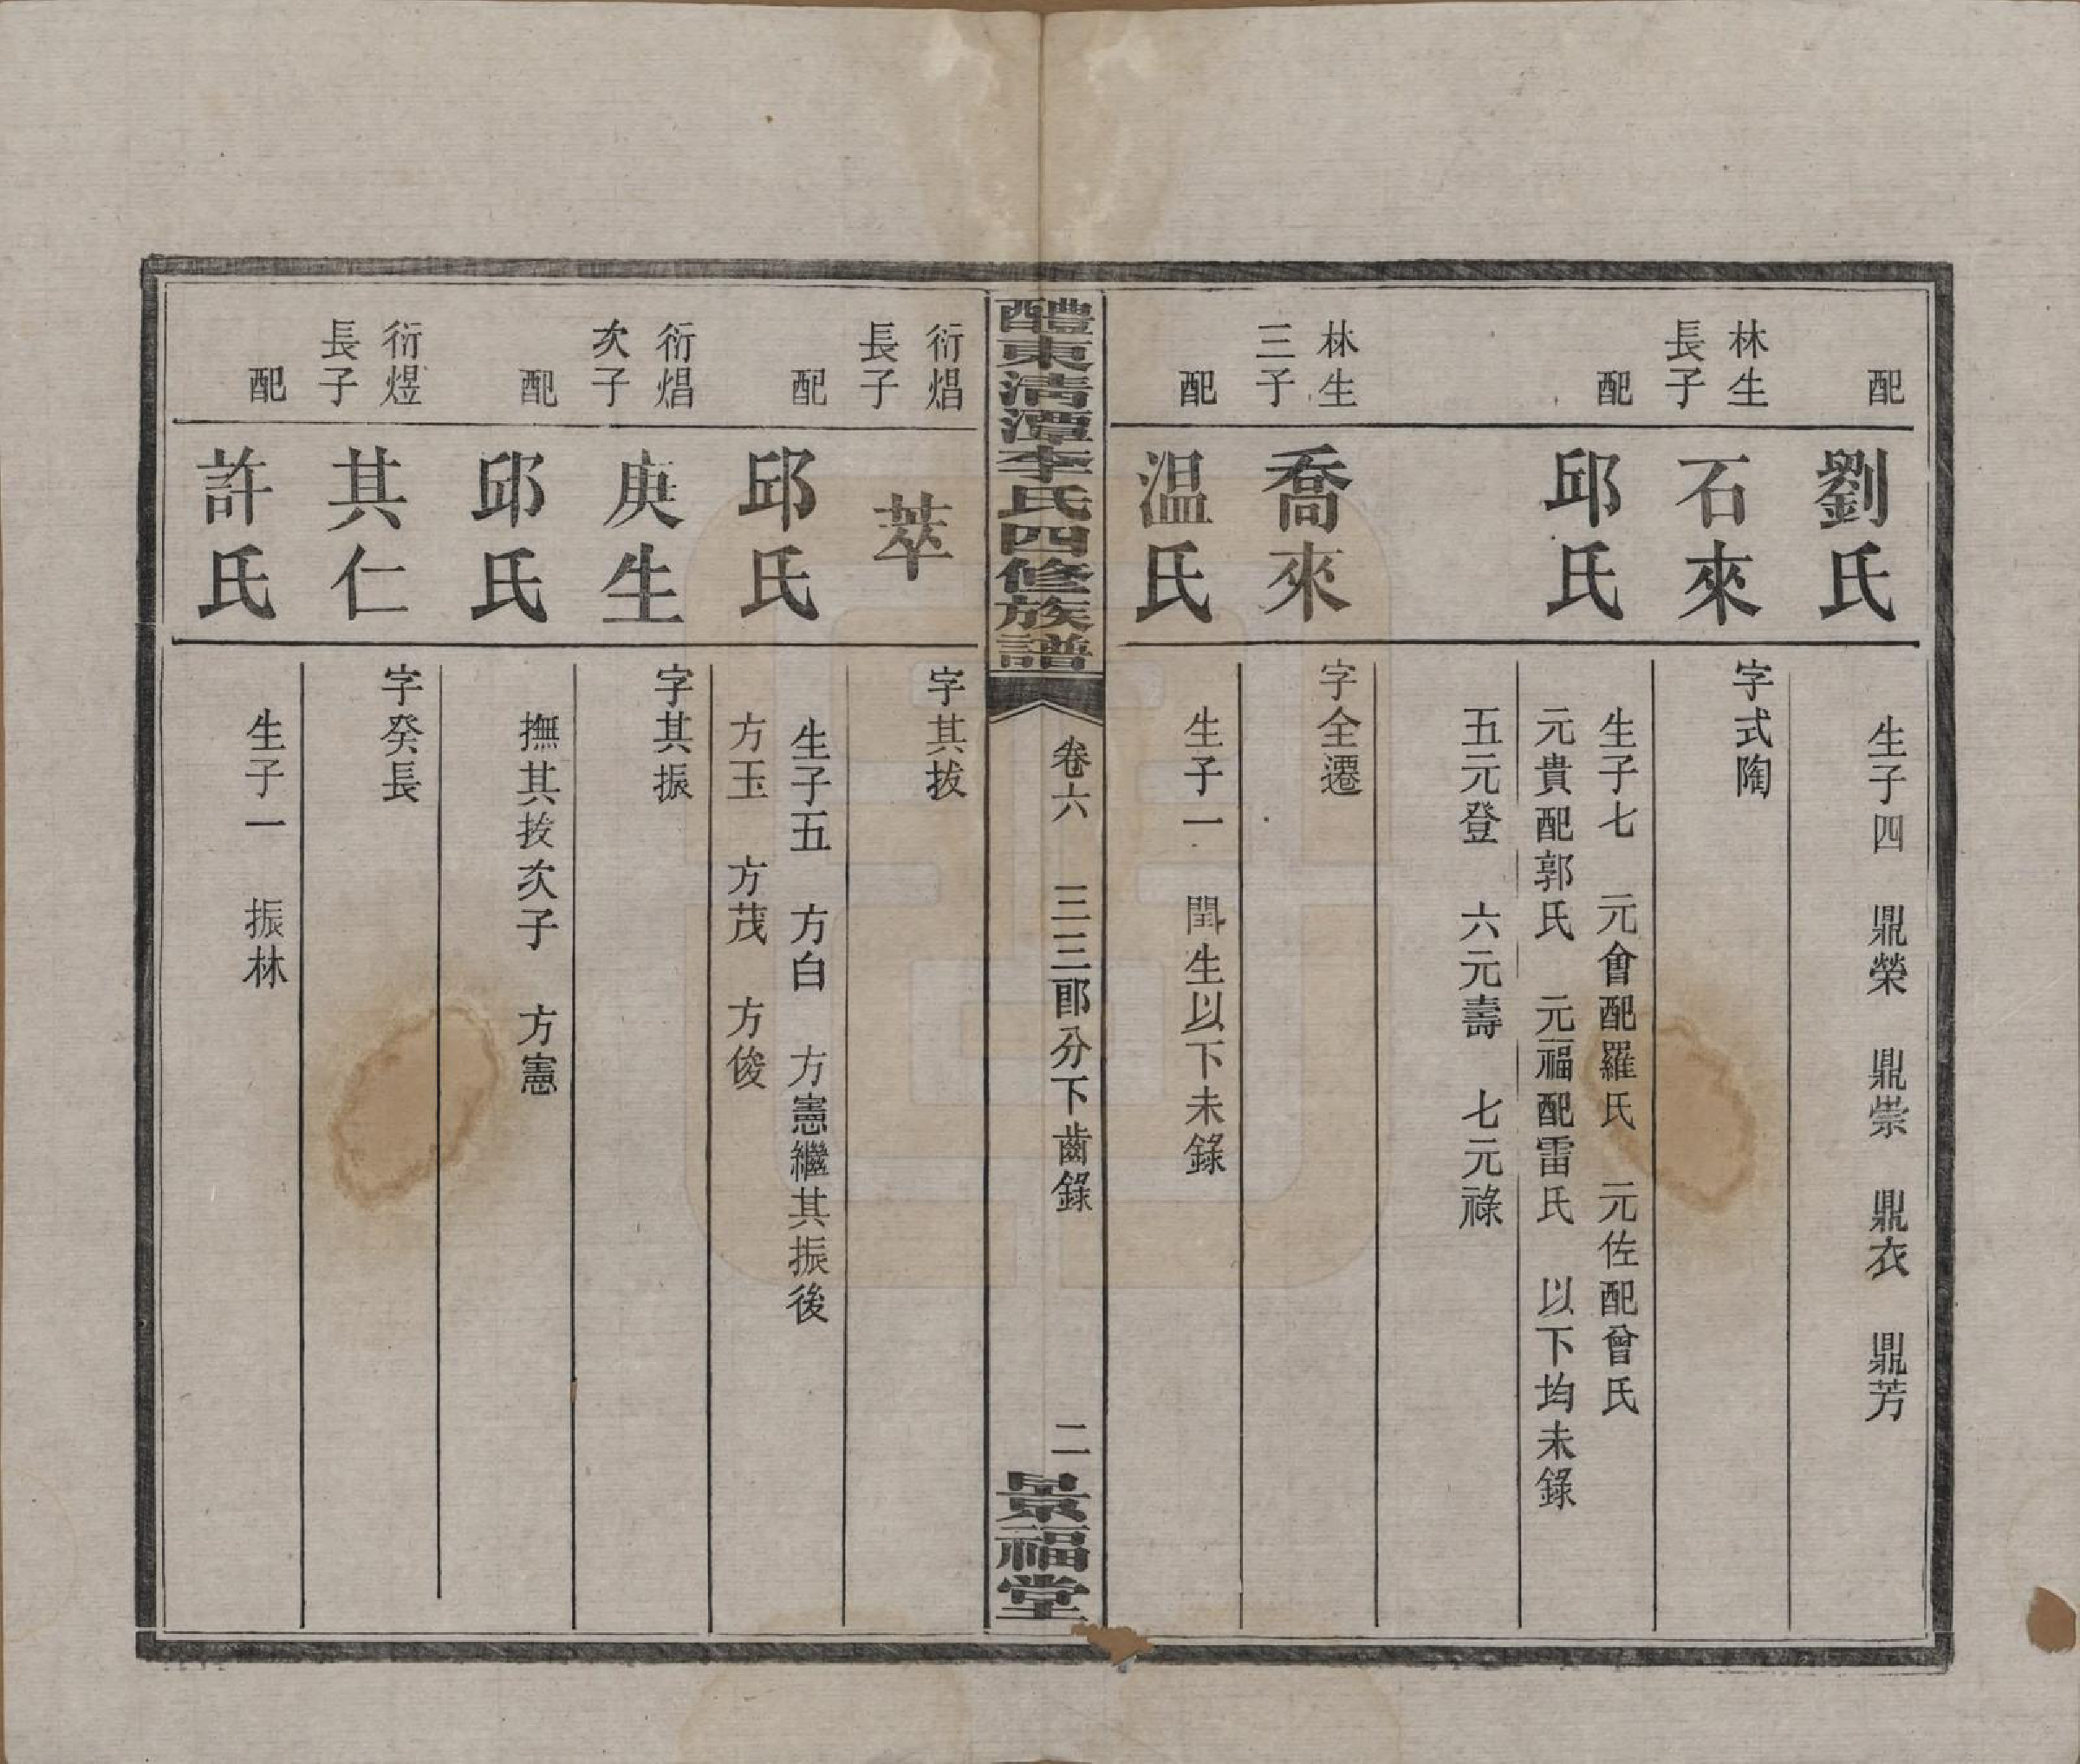 配
劉氏
生子四　鼎榮　鼎崇　鼎衣　鼎芳
林生
長子
石來
字式陶
配
邱氏
生子七　元會配羅氏　元佐配曾氏
元貴配郭氏　元福配雷氏　以下均未錄
五元登　六元壽　七元祿
林生
三子
喬來
字全遷
配
温氏
生子一　閏生以下未錄
醴東清潭李氏四修族譜
卷六　三三郎分下齒錄
二
景福堂
衍焻
長子
萃
字其拔
配
邱氏
生子五　方白　方憲繼其振後
方玉　方茂　方俊
衍焻
次子
庚生
字其振
配
邱氏
撫其拔次子　方憲
衍煜
長子
其仁
字癸長
配
許氏
生子一　振林